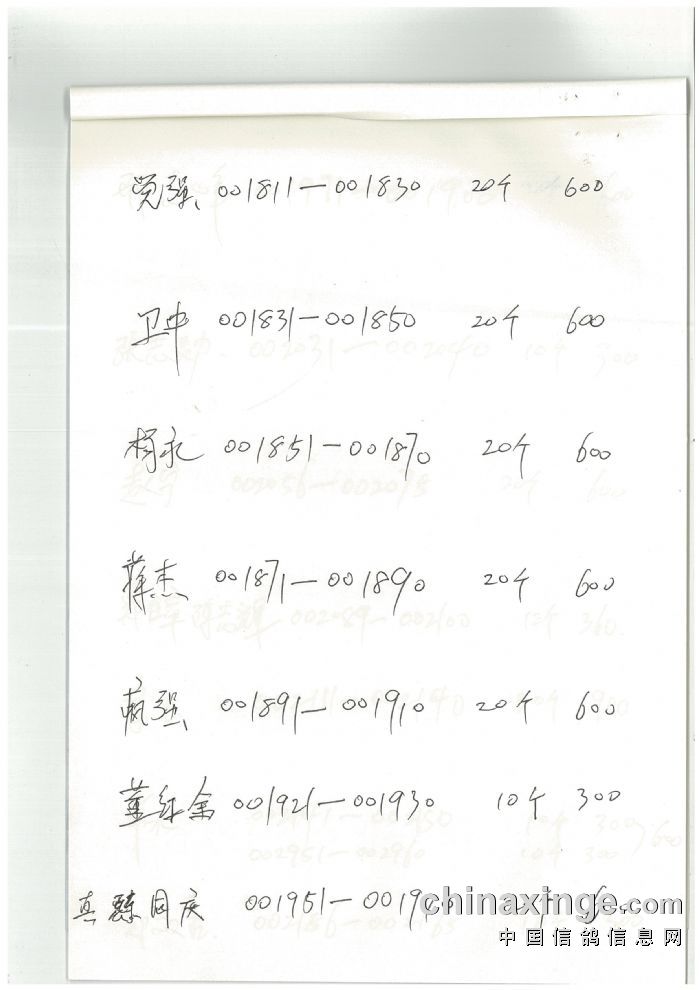 强 001811—001830 20个 600
卫中 001831—001850 20个 600
杨永 001851—001870 20个 600
蒋杰 001871—001890 20个 600
强 001891—001910 20个 600
董红金 001921—001930 10个 300
真 同庆 001951—0019
chinaxinge.com
中国信鸽信息网